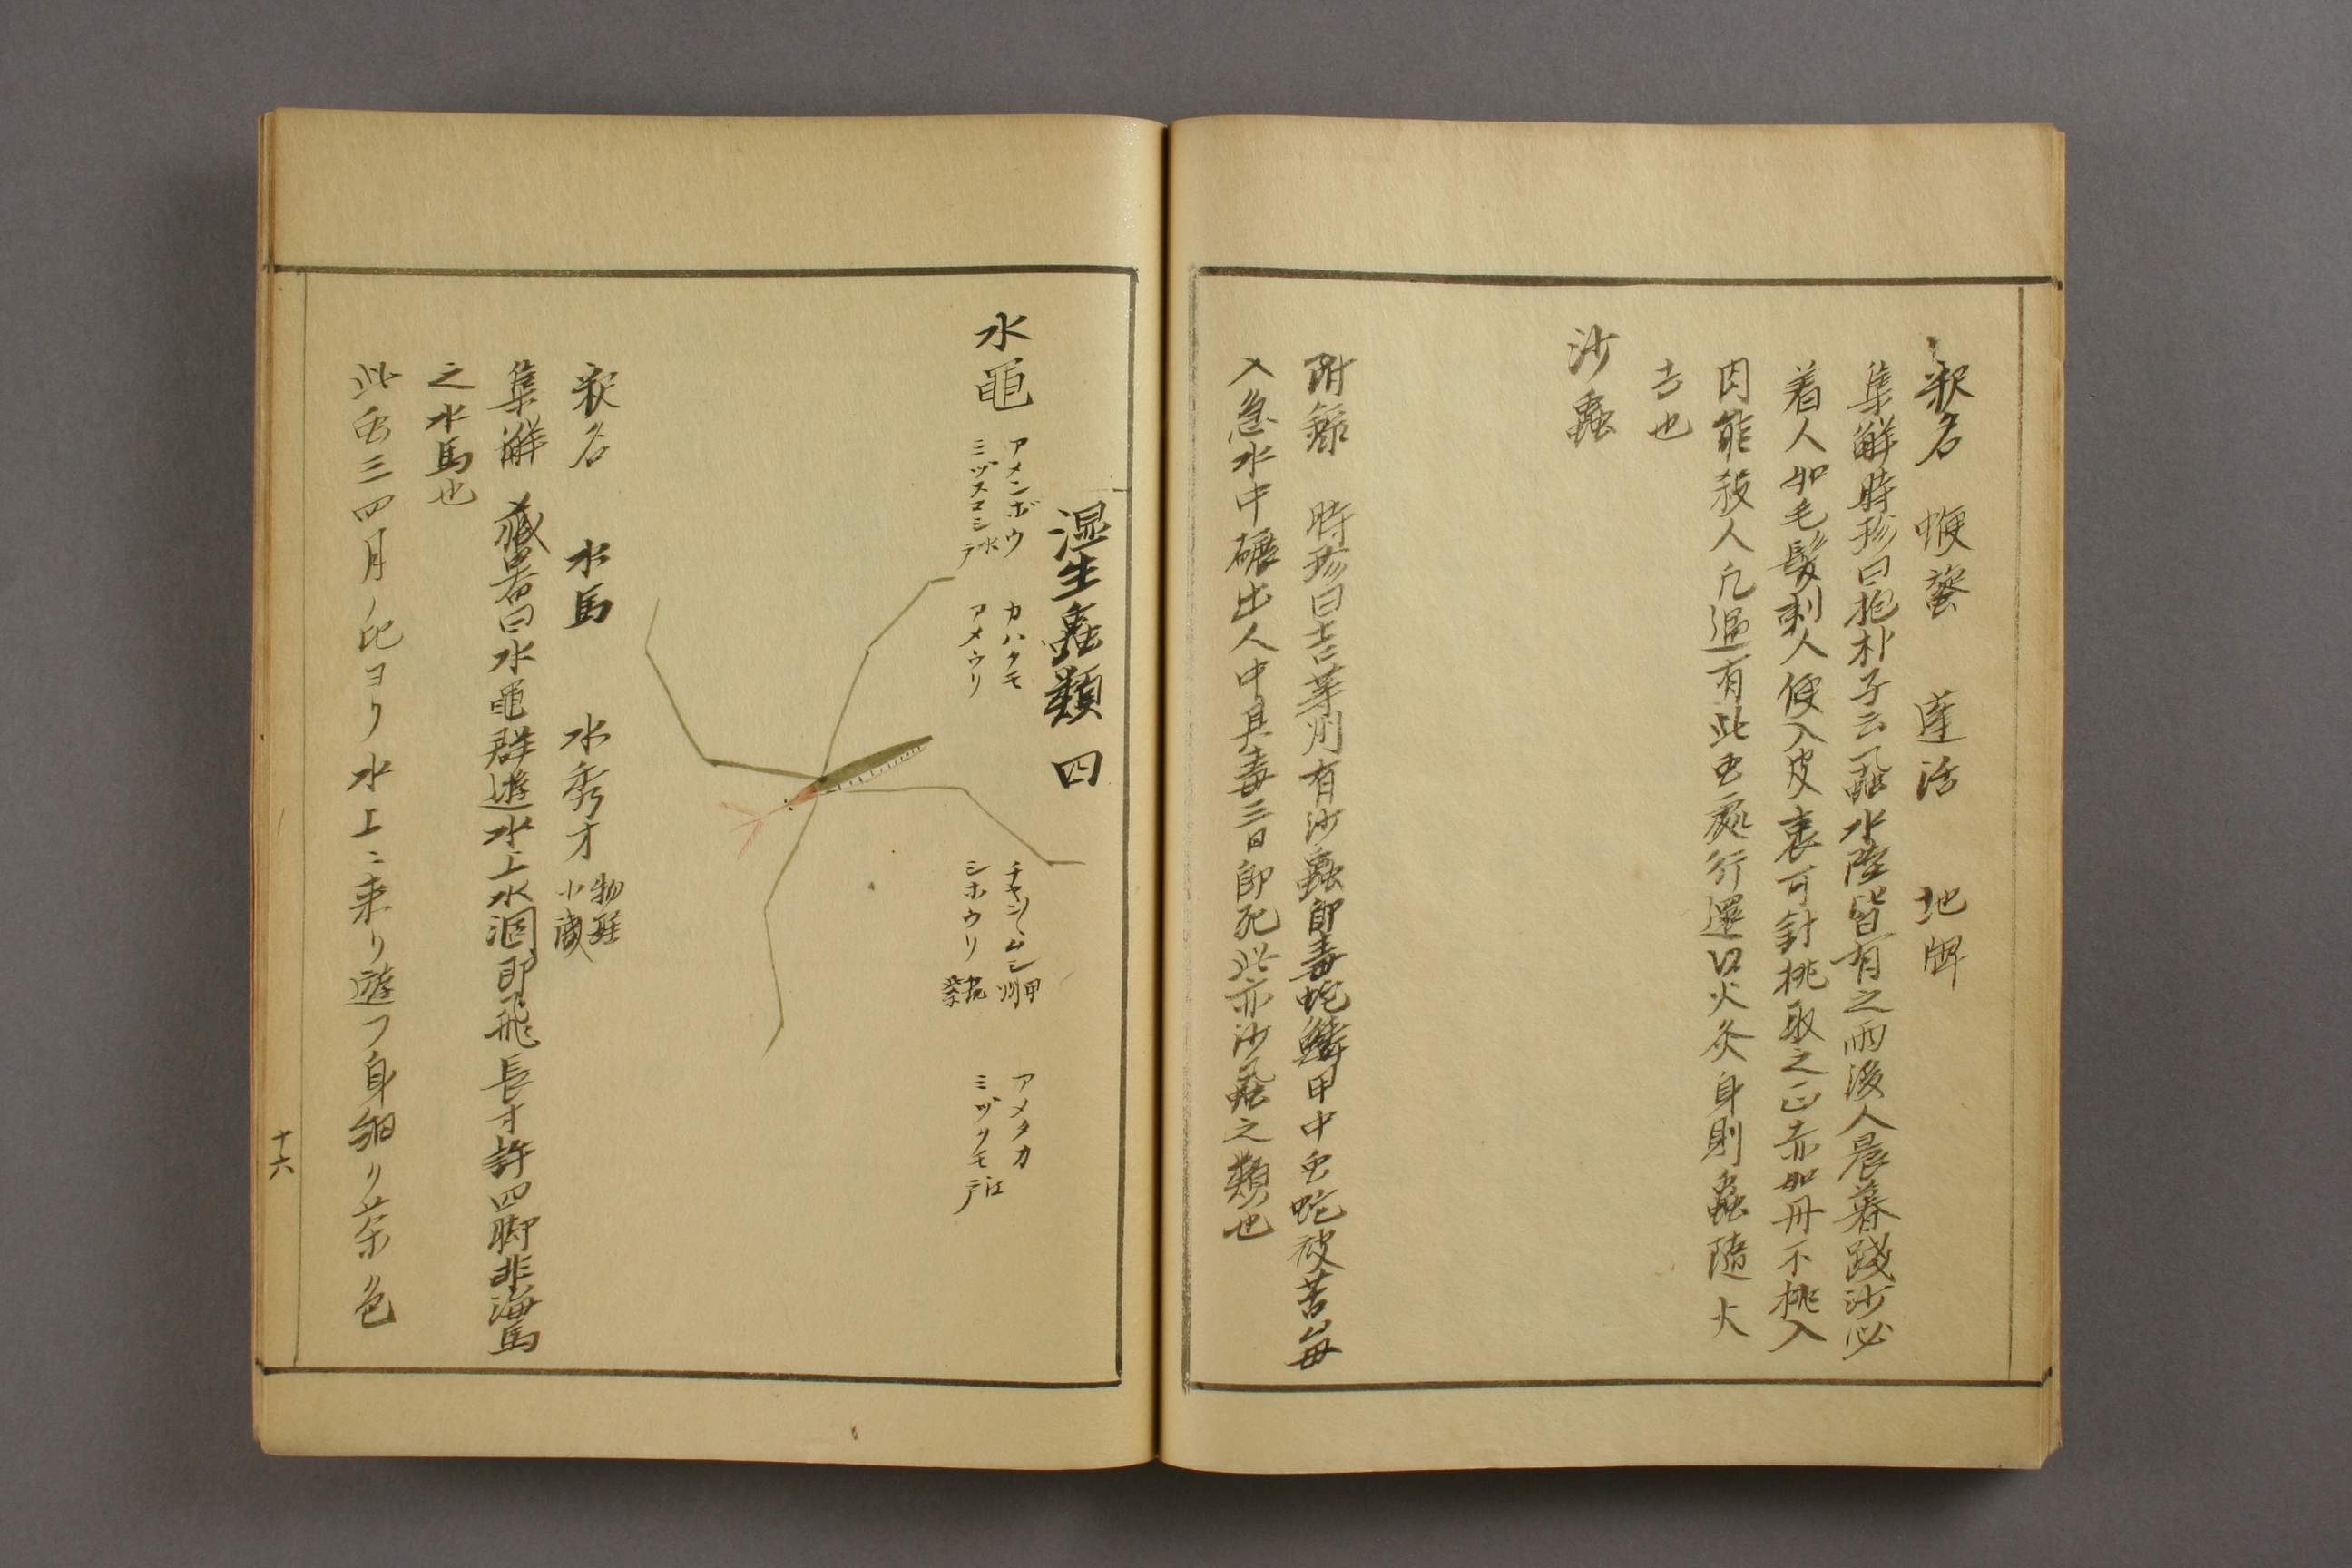 釈名　蝘䘍　蓬活　地脾
集解時珍曰抱朴子云沙虱水陸皆有之雨後人晨暮踐沙必
着人如毛髮刺人便入皮裏可針挑取之正赤如丹不挑入
肉能殺人凡遇有此虫處行還以火灸身則蟲隨火
去也
沙蟲
附録　時珍曰吉莘州有沙蟲即毒蛇鱗甲中虫蛇被苦毎
入急水中碾出人中其毒三日即死此亦沙虱之類也
湿生蟲類四
水黽
アメンボウ　カハクモ　チヤンムシ甲州　アメタカ
ミヅスマシ水戸　アメウリ　シホウリ　ミヅクモ江戸
釈名　水馬　水秀才　物理小識
集解　蔵器曰水黽群遊水上水涸即飛長寸許四脚非海馬
之水馬也
此虫三四月ノ比ヨリ水上ニ来リ遊フ身細ク茶色
十六